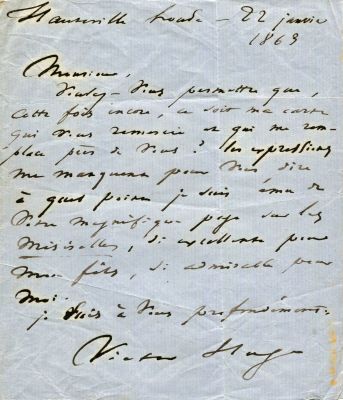 Hauteville house – 22 janvier
1863
Monsieur,
Voulez-vous permettre que,
cette fois encore, ce soit ma carte
qui vous remercie et qui me rem-
place près de vous ? les expressions
me manquent pour vous dire
à quel point je suis ému de
votre magnifique page sur les
Misérables, si excellente pour
mon fils, si admirable pour
moi.
je suis à vous profondément.
Victor Hugo